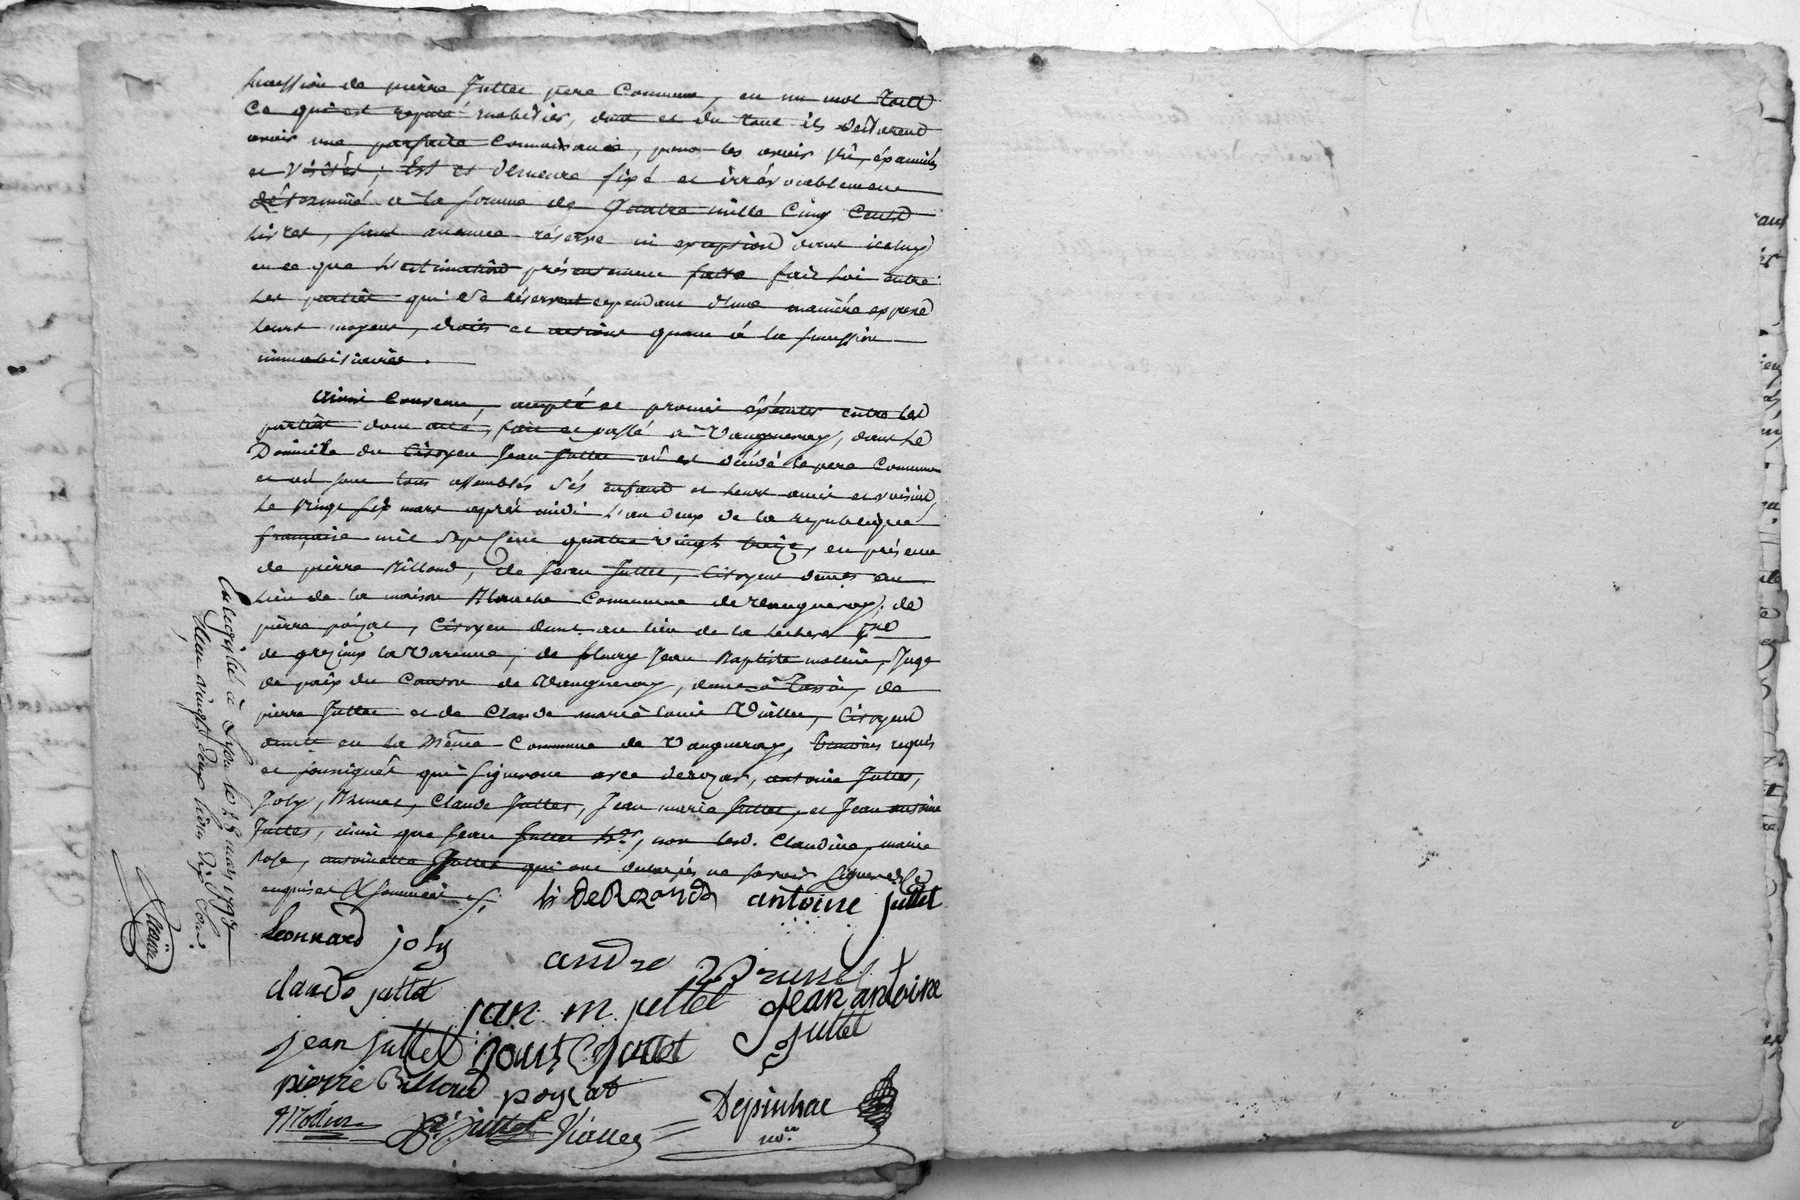 succession de pierre Juttet pere commun, en un mot tout
ce qui est reputé mobilier, dont et du tout ils declarent
avoir une parfaite connoissance, pour les avoir vû, éxaminés
et visités; Est et demeure fixé et irrévocablement
déterminé à la somme de quatre mille cinq cents
livres, sans aucune réserve ni exception dans iceluy
en ce que l'estimation présentement faite fait loi entre
les parties qui se réservent cependant d'une manière expresse
leurs moyens, droits et actions quant à la succession
immobiliaire.
Ainsi convenu, accepté et promis éxécuter entre les
parties dont acte, fait et passé à Vaugneray, dans le
Domicile du Citoyen Jean Juttet où est décédé le pere commun
et où sont tous assemblés sés enfans et leurs amis et voisins,
le vingt six mars après midi l'an deux de la republique
française mil sept cent quatre vingt treize, en présence
de pierre Billoud, de Jean Juttet, Citoyens demts au
lieu de la maison Blanche commune de Vaugneray, de
pierre poyzat, Citoyen demt. au lieu de la
de grezieux la Varenne, de fleury Jean Baptiste molière, Juge
de paix du Canton de Vaugneray, demt à Tassin, de
pierre Juttet et de Claude marie louis Viallet, Citoyens
demts en la Même commune de Vaugneray, temoins requis
et soussignés qui signeront avec derozar, antoine Juttet,
Joly, Brunet, Claude Juttet, Jean marie Juttet, et Jean antoine
Juttet, ainsi que Jean Juttet hr., non led. Claudine, marie
Rose, antoinette Juttet qui ont declarés ne savoir signer de ce
enquises & sommées ./.
antoine juttet
leonnard joly
andre Brunet
claude juttet
jan m juttet
jean antoine
juttet
jean juttet
juttet
pierre Billoud
poyzat
juttet
Depinhac
nore.
Enregistré à Lyon le 28 mars 1793
Reçu vingt deux livres dix sous.